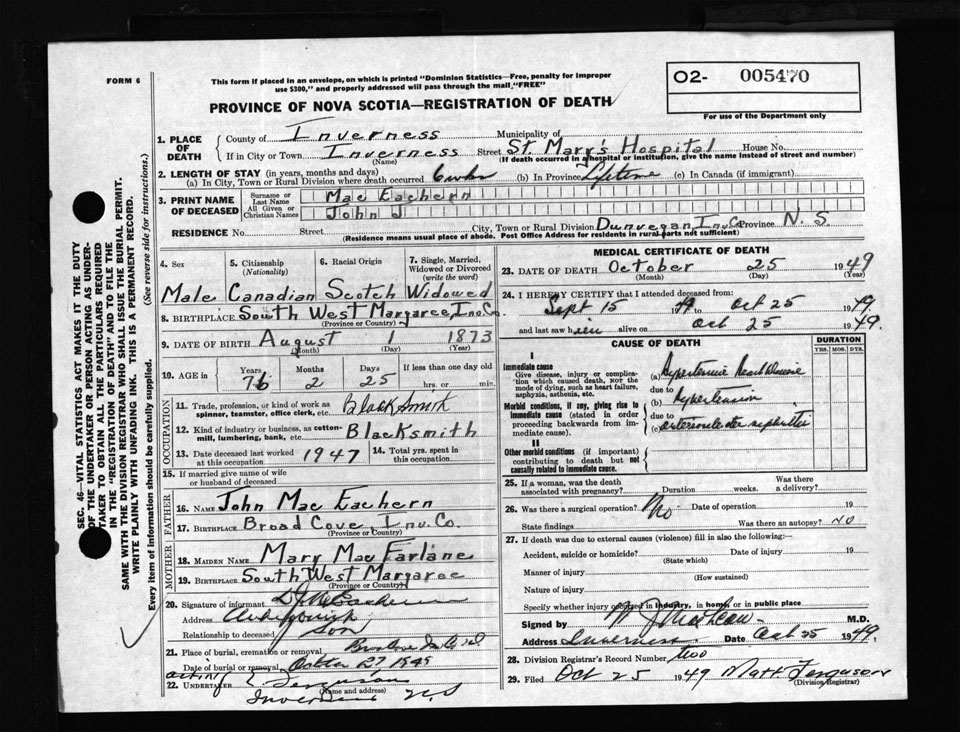 FORM 6
This form if placed in an envelope, on which is printed "Dominion Statistics—Free, penalty for improper
use $300," and properly addressed will pass through the mail "FREE"
PROVINCE OF NOVA SCOTIA—REGISTRATION OF DEATH
O2- 005470
For use of the Department only
SEC. 46—VITAL STATISTICS ACT MAKES IT THE DUTY
OF THE UNDERTAKER OR PERSON ACTING AS UNDER-
TAKER TO OBTAIN ALL THE PARTICULARS REQUIRED
IN THE "REGISTRATION OF DEATH" AND TO FILE THE
SAME WITH THE DIVISION REGISTRAR WHO SHALL ISSUE THE BURIAL PERMIT.
WRITE PLAINLY WITH UNFADING INK. THIS IS A PERMANENT RECORD.
Every item of information should be carefully supplied. (See reverse side for instructions.)
1. PLACE OF DEATH
County of Inverness Municipality of
If in City or Town Inverness (Name) Street St. Mary's Hospital House No.
(If death occurred in a hospital or institution, give the name instead of street and number)
2. LENGTH OF STAY (in years, months and days)
(a) In City, Town or Rural Division where death occurred 6 wks (b) In Province Lifetime (c) In Canada (if immigrant)
3. PRINT NAME OF DECEASED
Surname or Last Name Mac Eachern
All Given or Christian Names John J
RESIDENCE No. Street City, Town or Rural Division Dunvegan, Inv. Co Province N. S.
(Residence means usual place of abode. Post Office Address for residents in rural parts not sufficient)
4. Sex 5. Citizenship (Nationality) 6. Racial Origin 7. Single, Married, Widowed or Divorced (write the word)
Male Canadian Scotch Widowed
8. BIRTHPLACE South West Margaree, Inv. Co.
(Province or Country)
9. DATE OF BIRTH August 1 1873
(Month) (Day) (Year)
10. AGE in Years Months Days If less than one day old
76 2 25 hrs. or min.
OCCUPATION
11. Trade, profession, or kind of work as spinner, teamster, office clerk, etc. Blacksmith
12. Kind of industry or business, as cotton-mill, lumbering, bank, etc. Blacksmith
13. Date deceased last worked at this occupation 1947 14. Total yrs. spent in this occupation
15. If married give name of wife or husband of deceased
FATHER
16. Name John Mac Eachern
17. Birthplace Broad Cove, Inv. Co.
MOTHER
18. MAIDEN NAME Mary Mac Farlane
19. BIRTHPLACE South West Margaree
(Province or Country)
20. Signature of informant
Address
Relationship to deceased Son
21. Place of burial, cremation or removal
Date of burial or removal 27 1949
acting
22. UNDERTAKER Ferguson
(Name and address)
Inverness N S
MEDICAL CERTIFICATE OF DEATH
23. DATE OF DEATH October 25 1949
(Month) (Day) (Year)
24. I HEREBY CERTIFY that I attended deceased from:
Sept 15 1949 to Oct 25 1949.
and last saw him alive on Oct 25 1949.
CAUSE OF DEATH
DURATION
YRS. MOS. DYS.
I
Immediate cause
Give disease, injury or complication which caused death, NOT the mode of dying, such as heart failure, asphyxia, asthenia, etc.
(a) Hypertensive heart disease
due to
Morbid conditions, if any, giving rise to immediate cause (stated in order proceeding backwards from immediate cause).
(b) hypertension
due to
(c) nephritis
II
Other morbid conditions (if important) contributing to death but not causally related to immediate cause.
25. If a woman, was the death associated with pregnancy? Duration weeks. Was there a delivery?
26. Was there surgical operation? No Date of operation 19
State findings Was there an autopsy? NO
27. If death was due to external causes (violence) fill in also the following:
Accident, suicide or homicide? Date of injury 19
(State which)
Manner of injury
(How sustained)
Nature of injury
Specify whether injury occurred in industry, in home, or in public place
Signed by M.D.
Address Inverness Date Oct 25 1949.
28. Division Registrar's Record Number two
29. Filed Oct 25 1949 Matt. Ferguson
(Division Registrar)